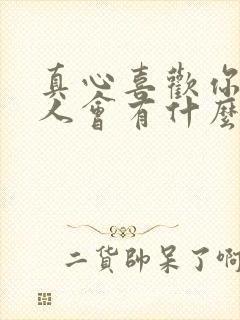 真心喜歡你
人會有什麼
二貨帥呆了啊